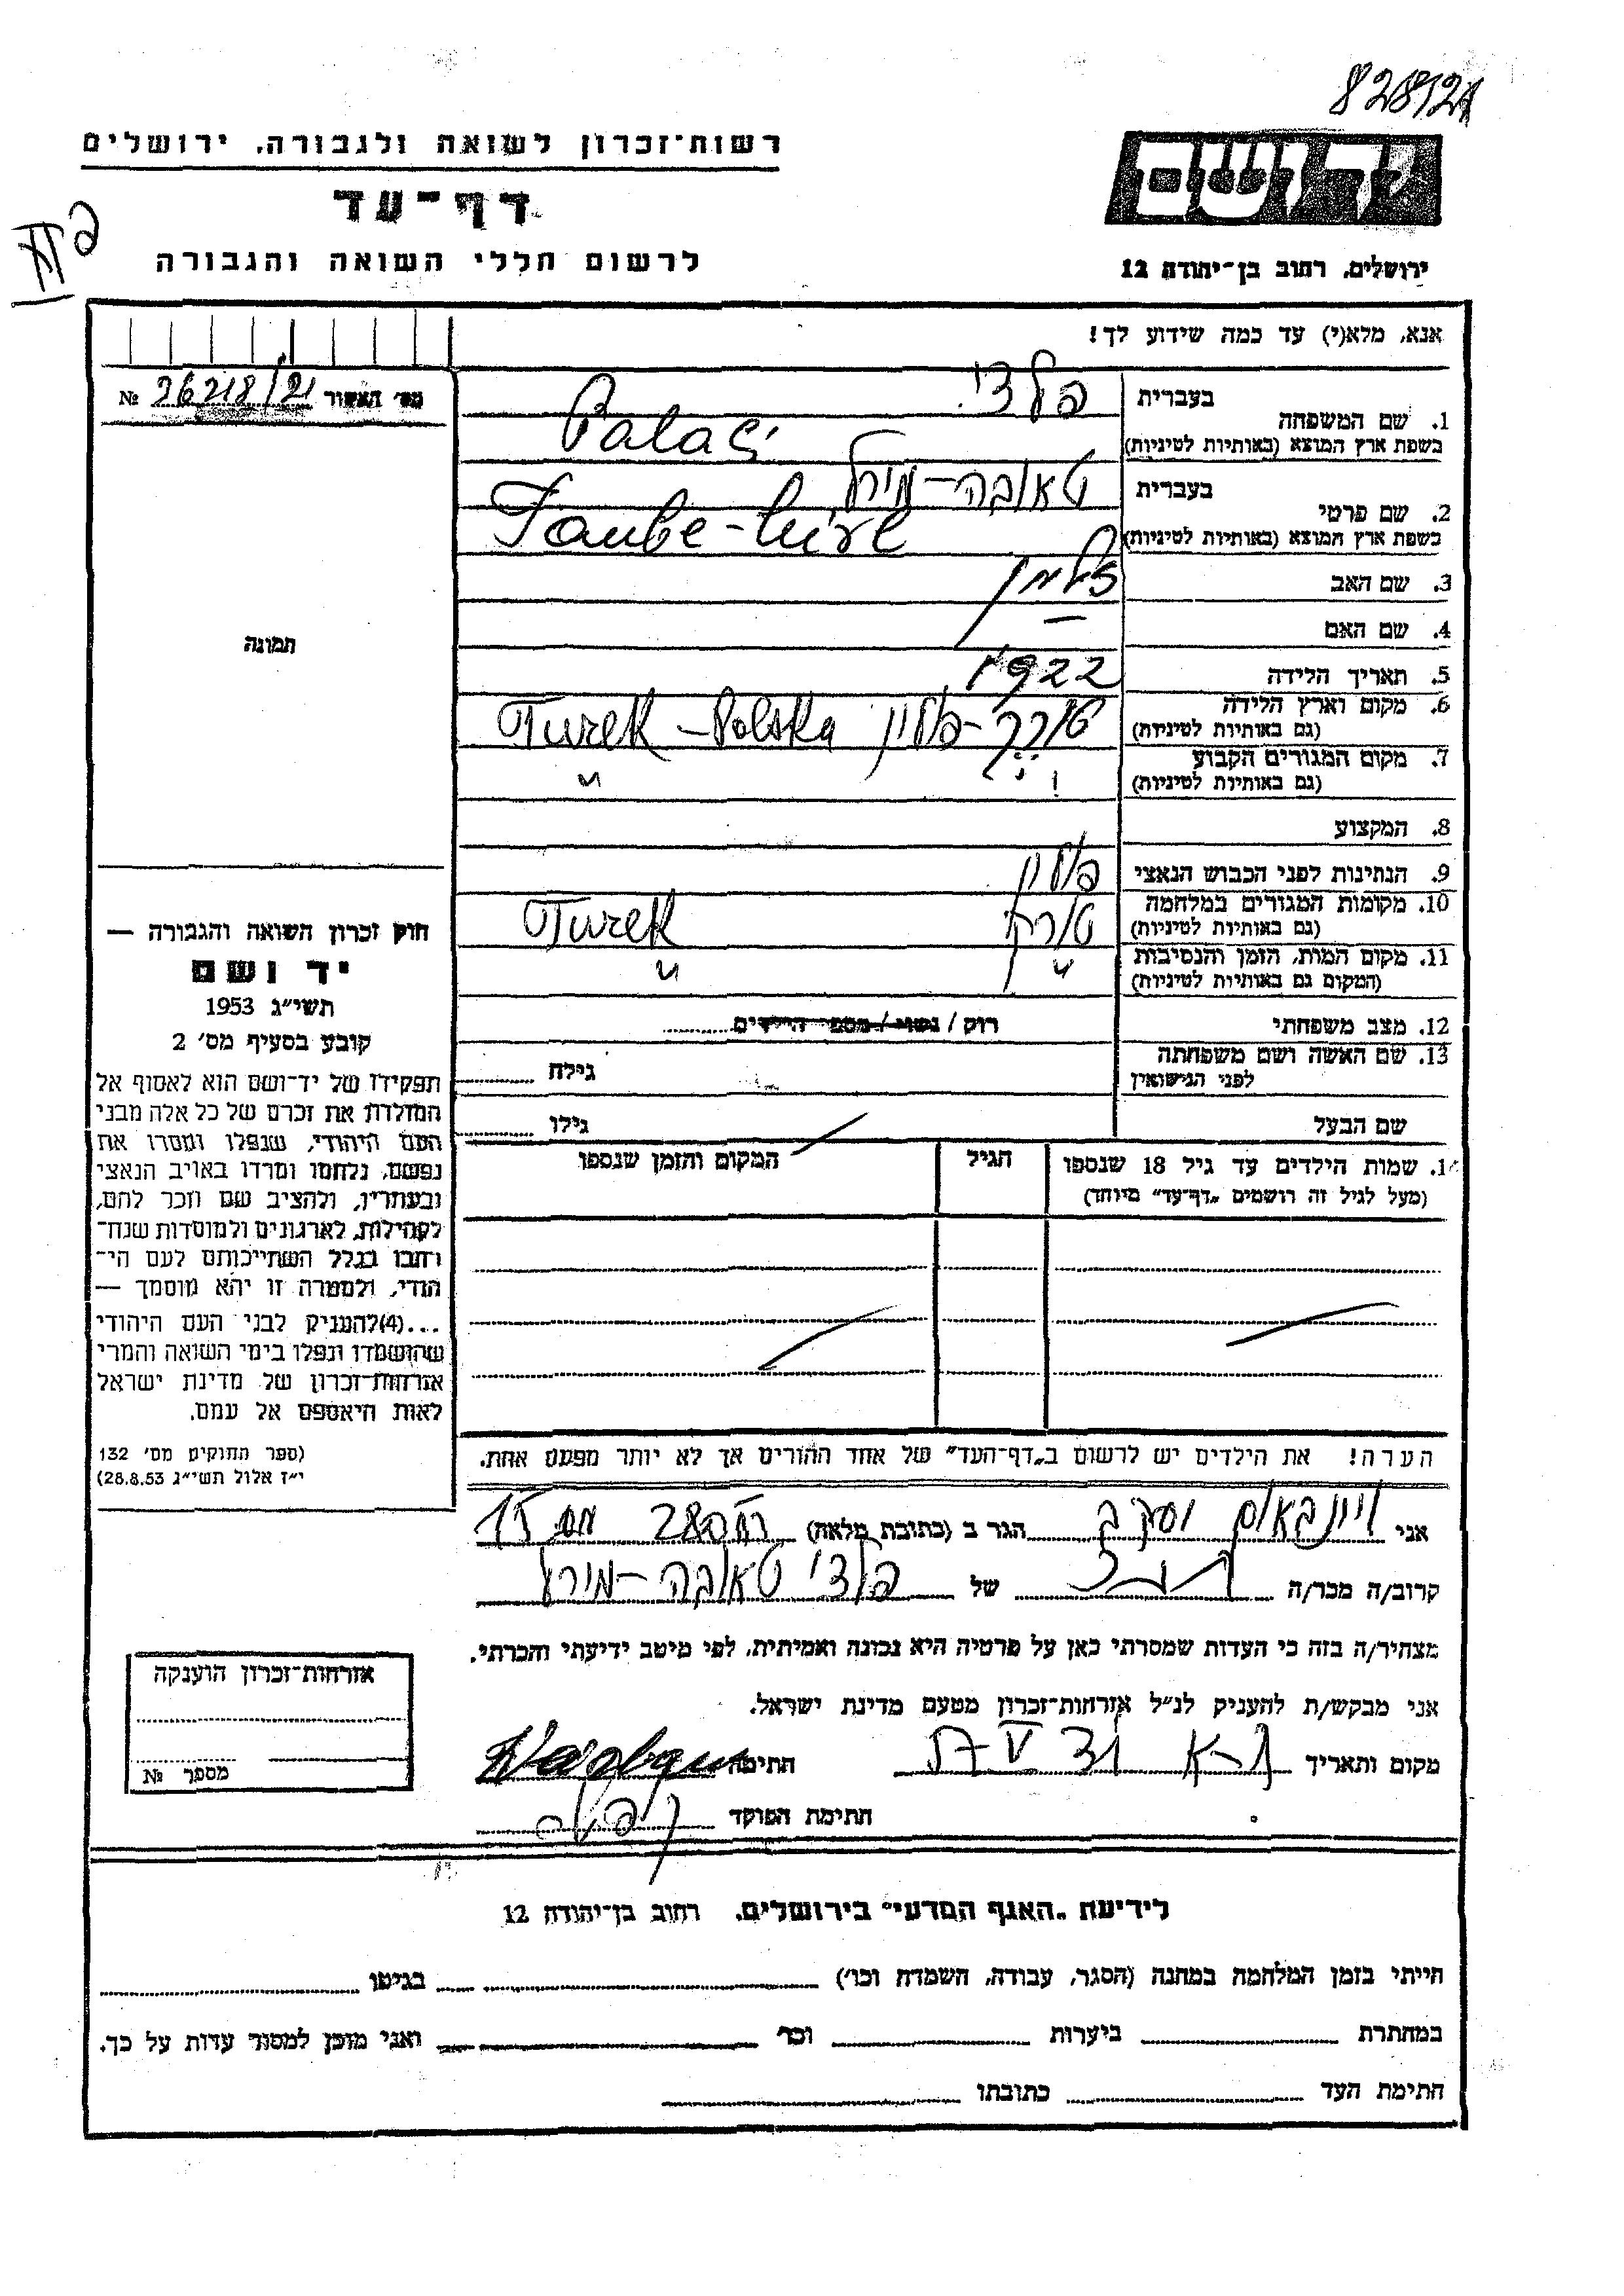 828/21
רשות־זכרון לשואה ולגבורה, ירושלים
דף־עד
לרשום חללי השואה והגבורה
פ II
יד ושם
ירושלים, רחוב בן־יהודה 12
אנא, מלא(י) עד כמה שידוע לך!
מס׳ האשור № 26218/21
1. שם המשפחה
בעברית פלצי
בשפת ארץ המוצא (באותיות לטיניות) Palaci
2. שם פרטי
בעברית טאובה-מירל
בשפת ארץ המוצא (באותיות לטיניות) Taube-Mirl
3. שם האב זלמן
4. שם האם —
5. תאריך הלידה 1922
6. מקום וארץ הלידה (גם באותיות לטיניות) טורק-פולין Turek-Polska
7. מקום המגורים הקבוע (גם באותיות לטיניות) " "
8. המקצוע
9. הנתינות לפני הכבוש הנאצי פולין
10. מקומות המגורים במלחמה (גם באותיות לטיניות) טורק Turek
11. מקום המות, הזמן והנסיבות (המקום גם באותיות לטיניות) " "
12. מצב משפחתי רוק / נשוי / מספר הילדים
13. שם האשה ושם משפחתה לפני הנישואין גילה
שם הבעל גילו
14. שמות הילדים עד גיל 18 שנספו
(מעל לגיל זה רושמים „דף־עד״ מיוחד)
הגיל
המקום והזמן שנספו
הערה! את הילדים יש לרשום ב„דף־העד״ של אחד ההורים אך לא יותר מפעם אחת.
תמונה
חוק זכרון השואה והגבורה —
יד ושם
תשי״ג 1953
קובע בסעיף מס׳ 2
תפקידו של יד־ושם הוא לאסוף אל
המולדת את זכרם של כל אלה מבני
העם היהודי, שנפלו ומסרו את
נפשם, נלחמו ומרדו באויב הנאצי
ובעוזריו, ולהציב שם וזכר להם,
לקהילות, לארגונים ולמוסדות שנח־
רבו בגלל השתייכותם לעם הי־
הודי, ולמטרה זו יהא מוסמך —
...(4)להעניק לבני העם היהודי
שהושמדו ונפלו בימי השואה והמרי
אזרחות־זכרון של מדינת ישראל
לאות היאספם אל עמם.
(ספר החוקים מס׳ 132
י״ז אלול תשי״ג 28.8.53)
אני ויינבאום יעקב הגר ב (כתובת מלאה) 280 מס 15
קרוב/ה מכר/ה של פלצי טאובה-מירל
מצהיר/ה בזה כי העדות שמסרתי כאן על פרטיה היא נכונה ואמיתית, לפי מיטב ידיעתי והכרתי.
אני מבקש/ת להעניק לנ״ל אזרחות־זכרון מטעם מדינת ישראל.
מקום ותאריך ת-א חתימה
חתימת הפוקד
אזרחות־זכרון הוענקה
מספר №
לידיעת „האגף המדעי״ בירושלים, רחוב בן־יהודה 12
הייתי בזמן המלחמה במחנה (הסגר, עבודה, השמדה וכו׳) בגיטו
במחתרת ביערות וכו׳ ואני מוכן למסור עדות על כך.
חתימת העד כתובתו